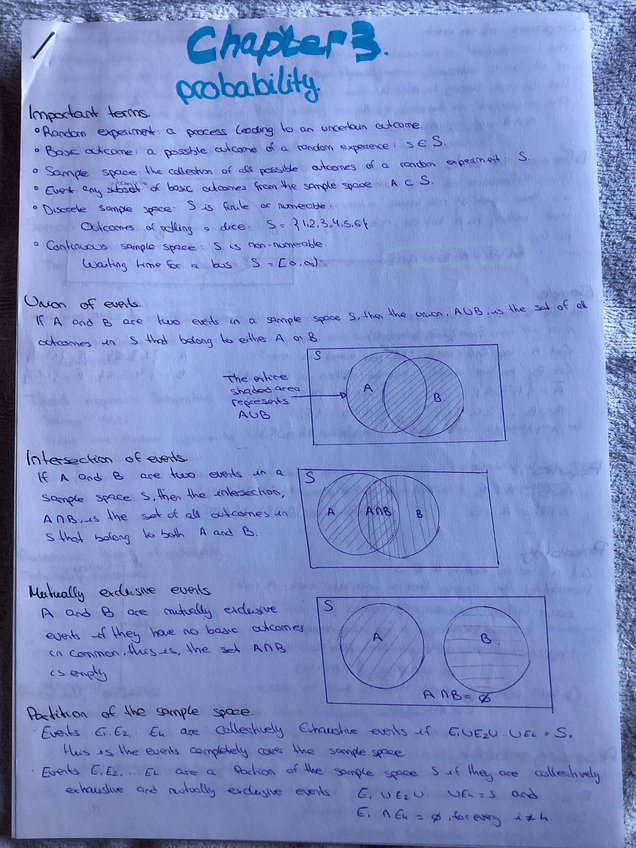 Chapter 3.
probability.
Important terms
° Random experiment: a process leading to an uncertain outcome.
° Basic outcome: a possible outcome of a random experience: s ∈ S.
° Sample space: the collection of all possible outcomes of a random experiment: S.
° Event any subset of basic outcomes from the sample space: A ⊂ S.
° Discrete sample space: S is finite or numerable.
Outcomes of rolling a dice: S = {1,2,3,4,5,6}
° Continuous sample space: S is non-numerable.
Waiting time for a bus: S = [0,∞)
Union of events.
If A and B are two events in a sample space S, then the union, A∪B, is the set of all
outcomes in S that belong to either A or B
S
The entire
shaded area
represents
A∪B
A
B
Intersection of events.
If A and B are two events in a
sample space S, then the intersection,
A∩B, is the set of all outcomes in
S that belong to both A and B.
S
A A∩B B
Mutually exclusive events
A and B are mutually exclusive
events if they have no basic outcomes
in common, this is, the set A∩B
is empty
S
A B
A∩B = ∅
Partition of the sample space.
Events E1 E2... Ek are collectively Exhaustive events if E1∪E2∪...∪Ek = S.
this is the events completely cover the sample space
Events E1 E2... Ek are a Partion of the sample space S if they are collectively
exhaustive and mutually exclusive events. E1 ∪ E2 ∪ ... ∪Ek = S and
Ei ∩ Ek = ∅, for every i ≠ k.